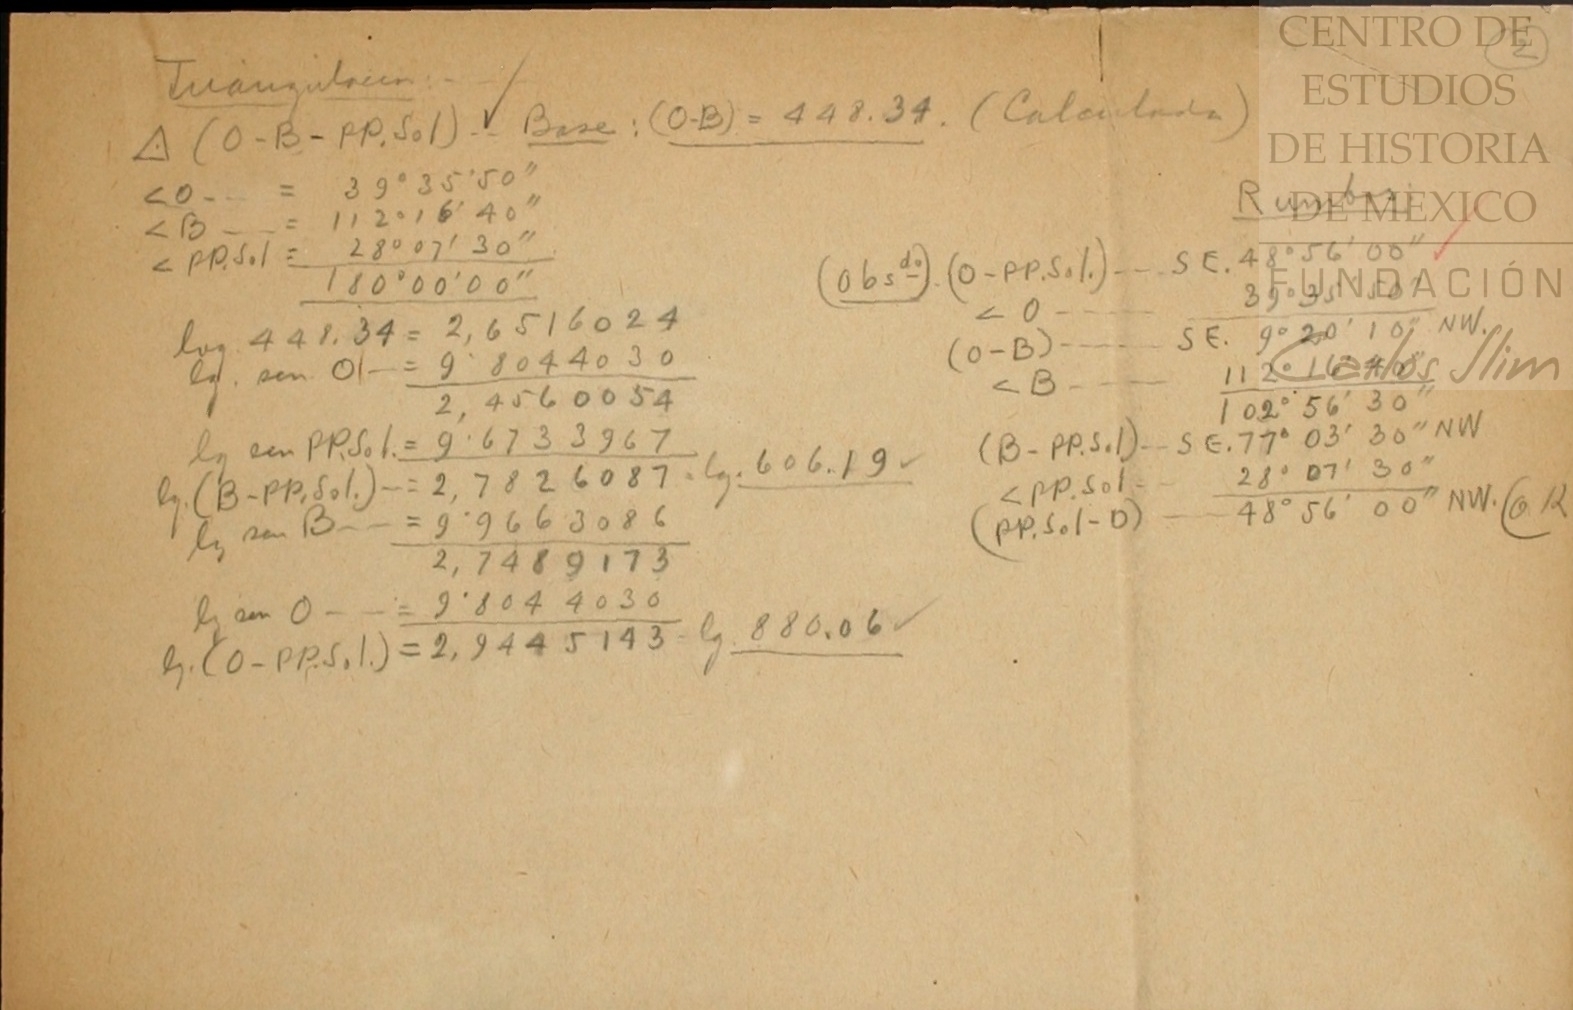 Triangulacion
CENTRO DE
2
ESTUDIOS
DE HISTORIA
DE MEXICO
FUNDACIÓN
Carlos Slim
△ (O-B-PP.Sol) -- Base: (O-B) = 448.34. (Calculada)
<O--- = 39°35'50"
<B --- = 112°16'40"
<PP.Sol = 28°07'30"
180°00'00"
log. 448.34 = 2,6516024
lg. sen O -- = 9.8044030
2,4560054
lg sen PP.Sol. = 9.6733967
lg.(B-PP.Sol.) -- = 2,7826087 = lg. 606.19 ✓
lg sen B --- = 9.9663086
2,7489173
lg sen O --- = 9.8044030
lg.(O-PP.Sol.) = 2,9445143 = lg. 880.06 ✓
Rumbos:
(Obsdo). (O-PP.Sol.) --- SE. 48°56'00"
<O ---- 39°35'50"
(O-B) ---- SE. 9°20'10" NW.
<B ---- 112°16'40"
102°56'30"
(B-PP.Sol) -- SE. 77°03'30" NW
<PP.Sol - 28°07'30"
(PP.Sol-O) --- 48°56'00" NW. (O.K